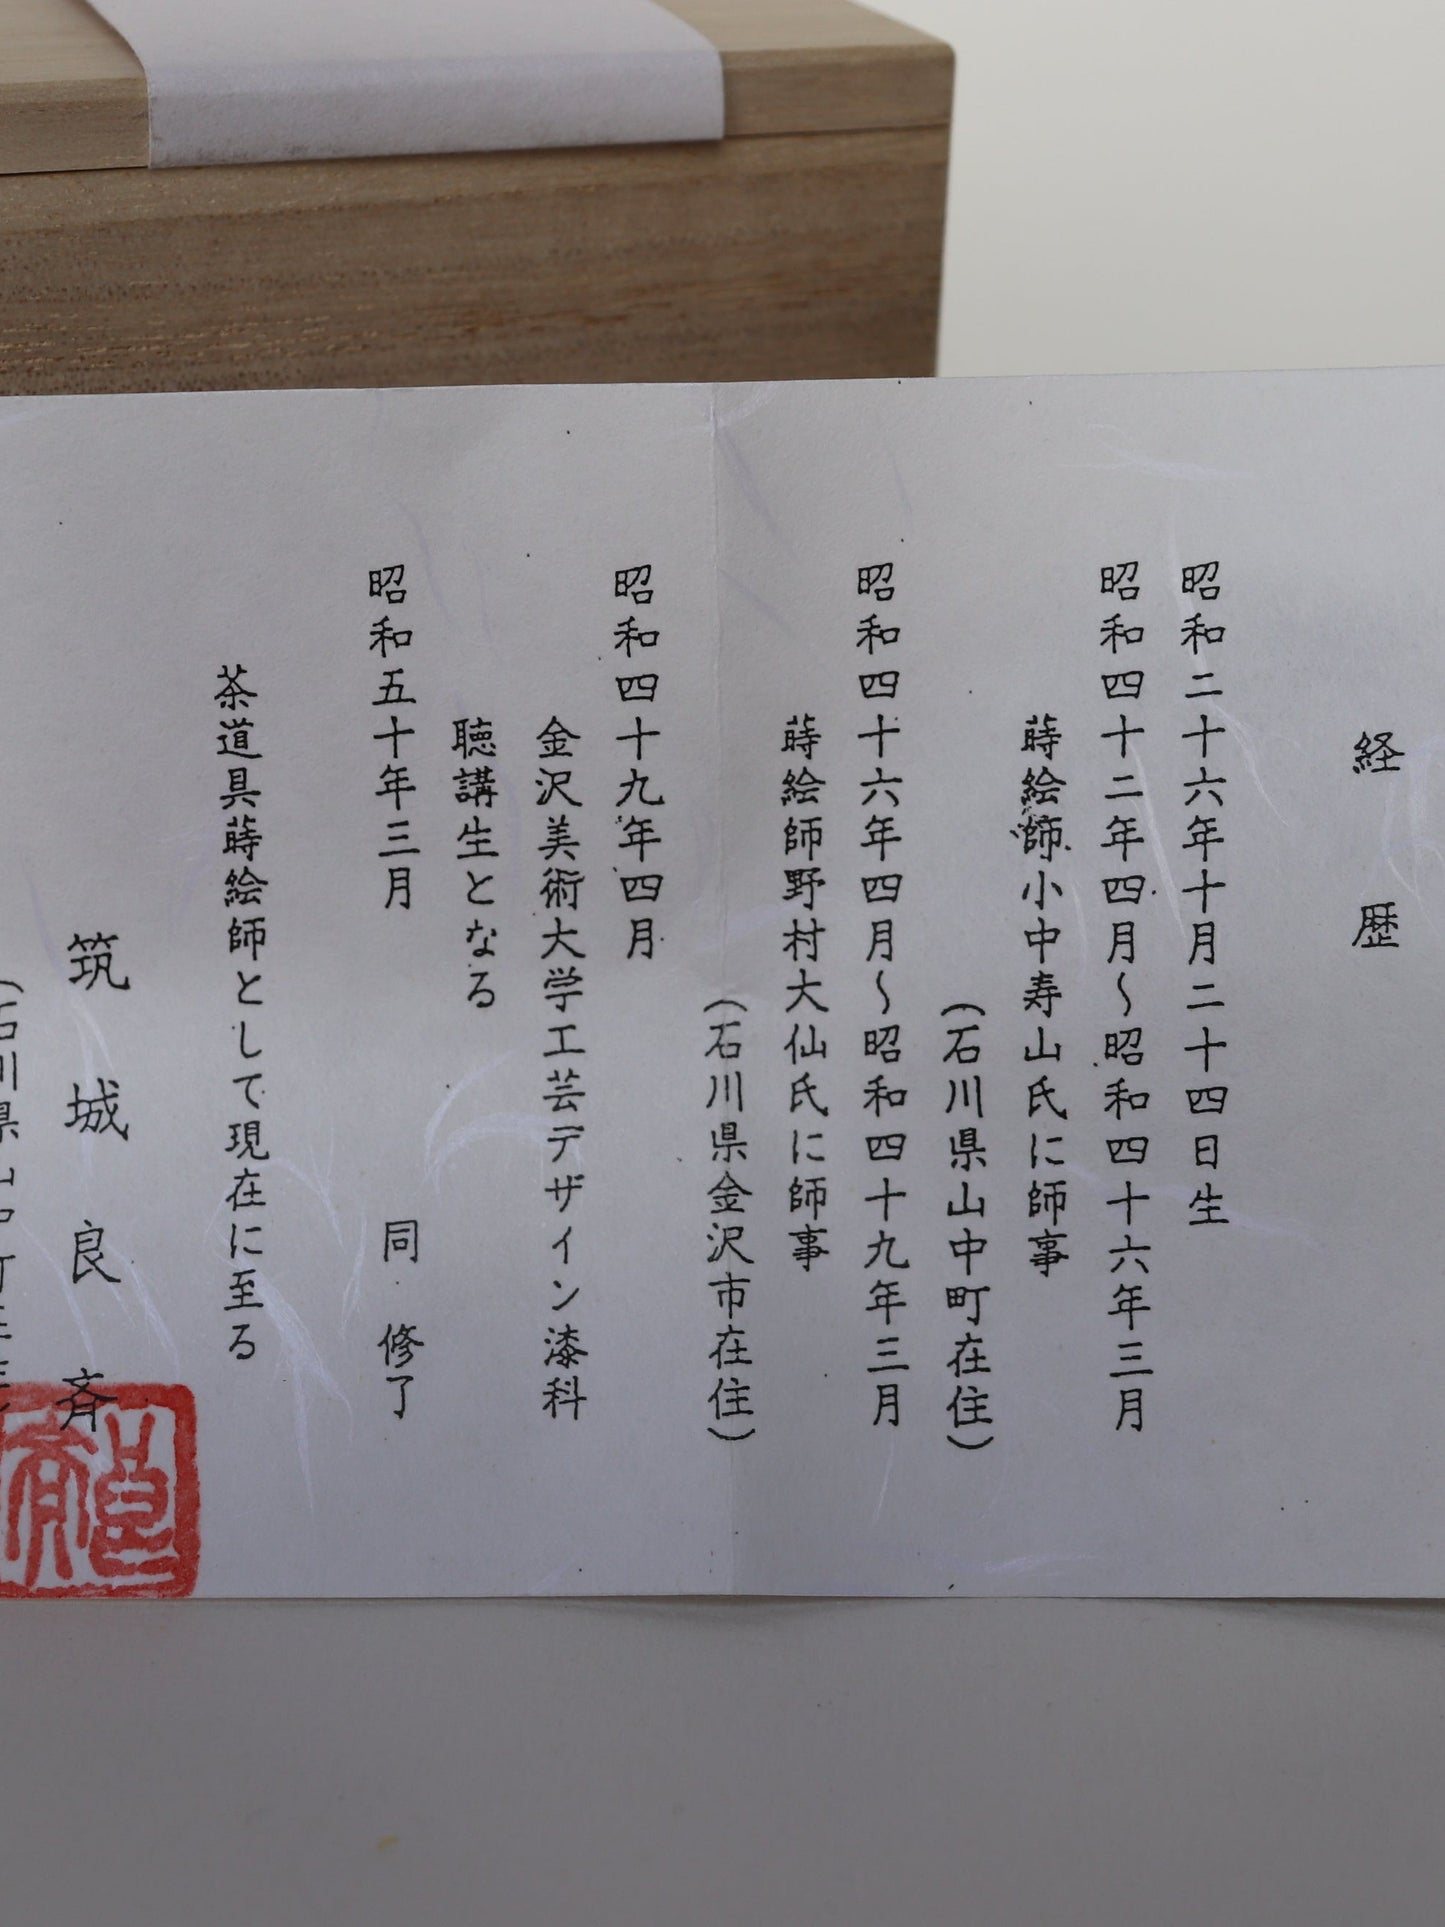 経歴
昭和二十六年十月二十四日生
昭和四十二年四月〜昭和四十六年三月
蒔絵師小中寿山氏に師事
(石川県山中町在住)
昭和四十六年四月〜昭和四十九年三月
蒔絵師野村大仙氏に師事
(石川県金沢市在住)
昭和四十九年四月
金沢美術大学工芸デザイン漆科
聴講生となる
昭和五十年三月 同 修了
茶道具蒔絵師として現在に至る
筑城良斉
(石川県山中町
良斉